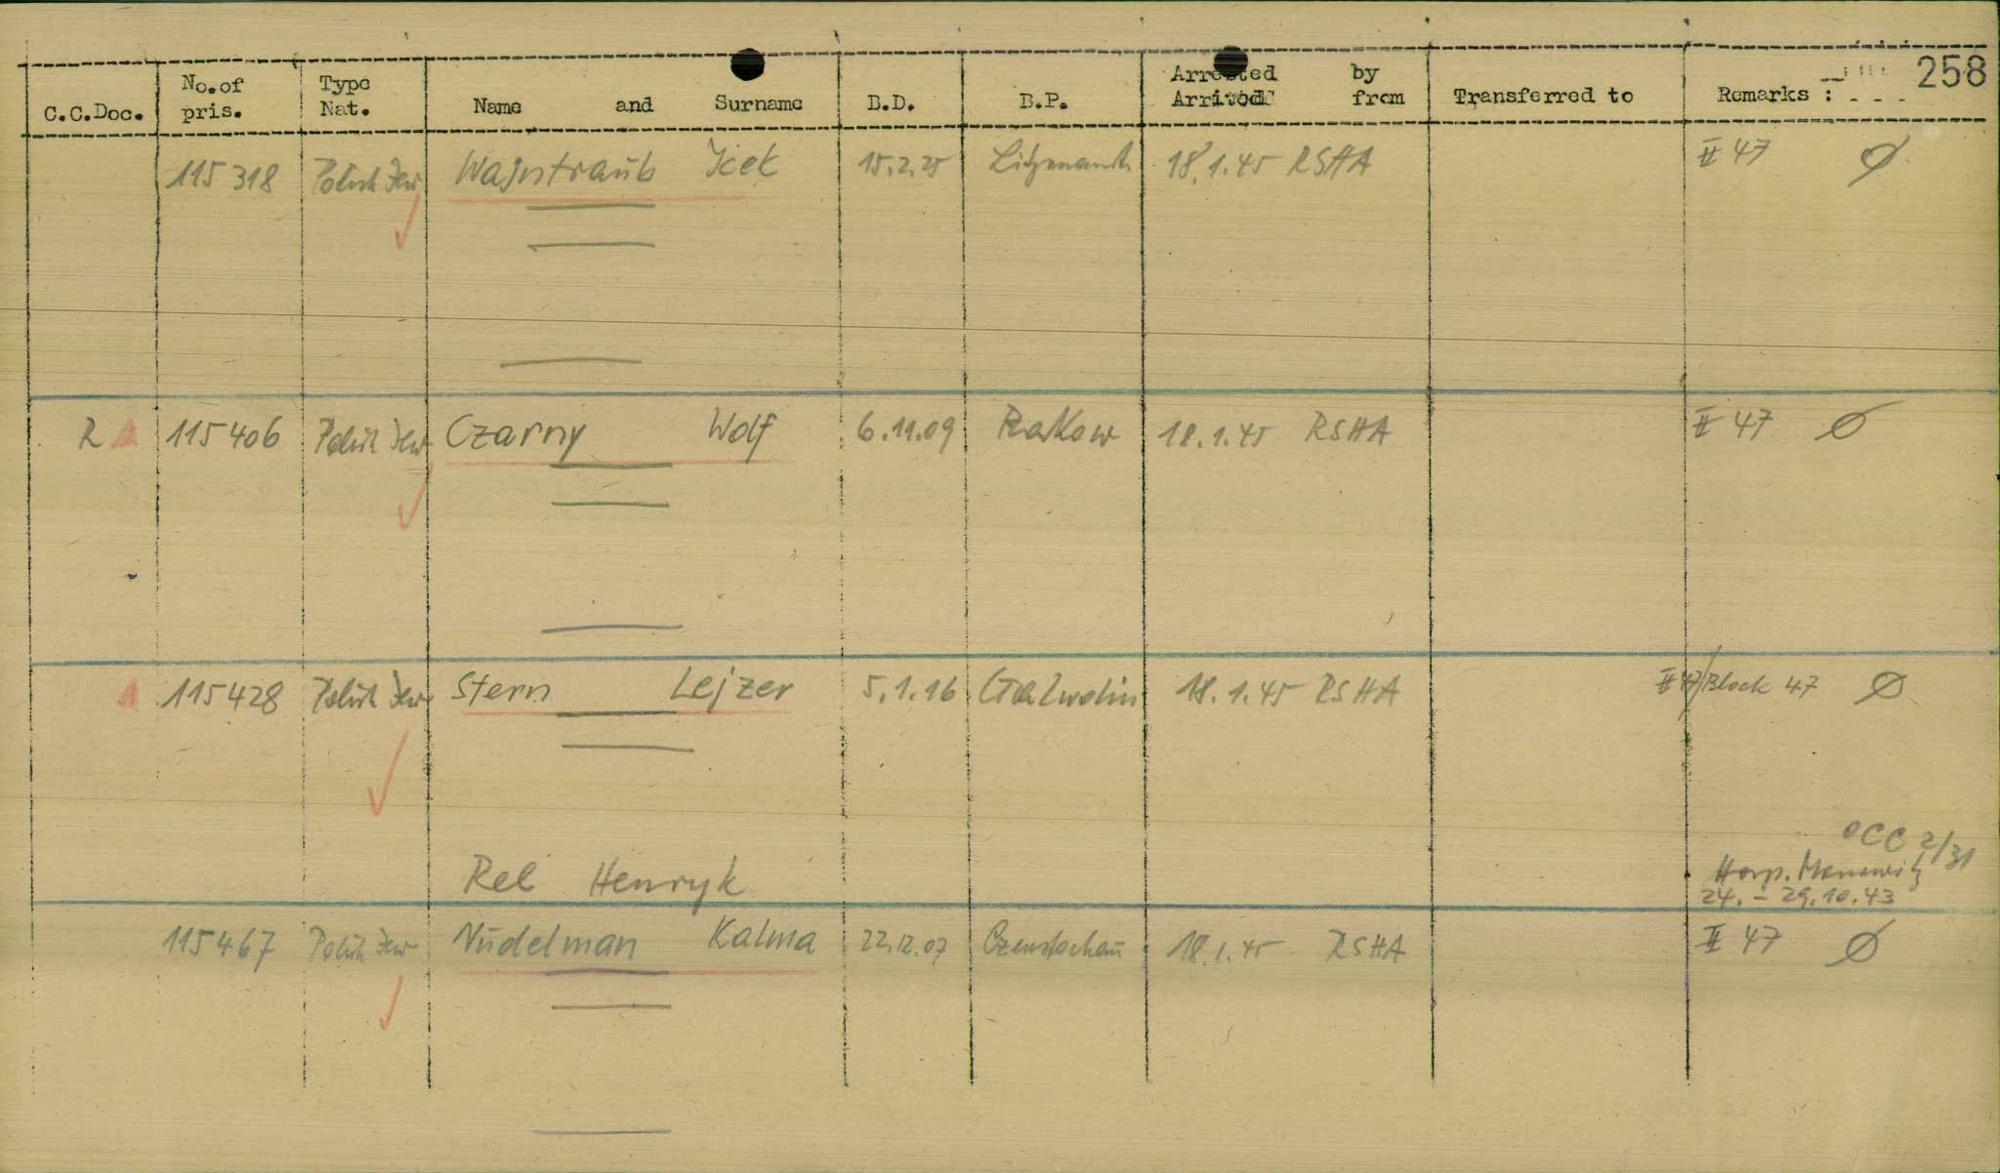 258
C.C.Doc. No.of pris. Type Nat. Name and Surname B.D. B.P. Arrested by Arrived from Transferred to Remarks :
115 318 Polit Jew Wajntraub Icek 15.2.25 Litzmannst. 18.1.45 RSHA II 47 Ø
R 115 406 Polit Jew Czarny Wolf 6.11.09 Rakow 18.1.45 RSHA II 47 Ø
115 428 Polit Jew Stern Lejzer 5.1.16 18.1.45 RSHA Block 47 Ø
OCC 2/31
Rel Henryk Hosp. Monowitz
24. - 29.10.43
115 467 Polit Jew Nudelman Kalma 22.12.07 Czenstochau 18.1.45 RSHA II 47 Ø